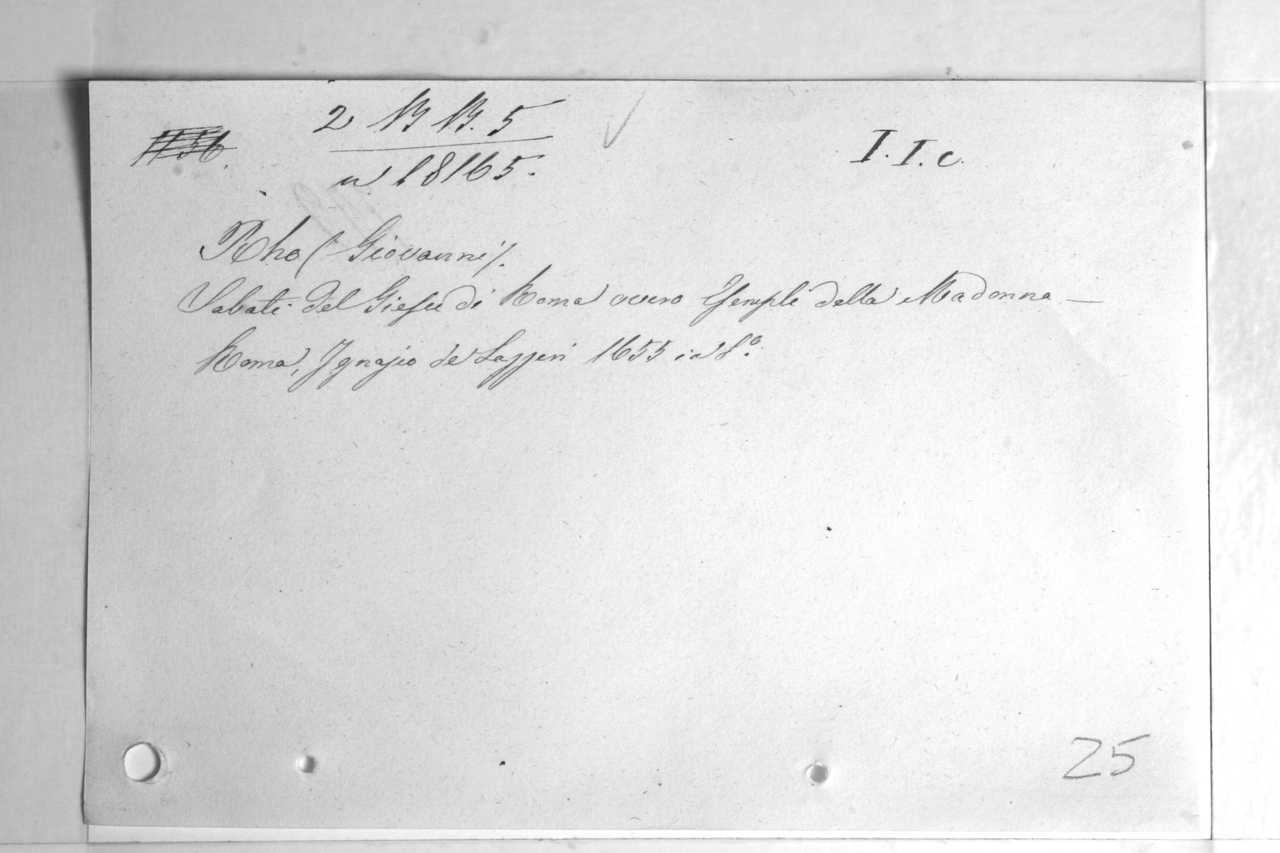 2 B B. 5
I. I. c.
n. 18165.
Rho (Giovanni).
Sabati del Giesu di Roma overo Esempli della Madonna —
Roma, Ignazio de Lazzeri 1655 in 8.º
25